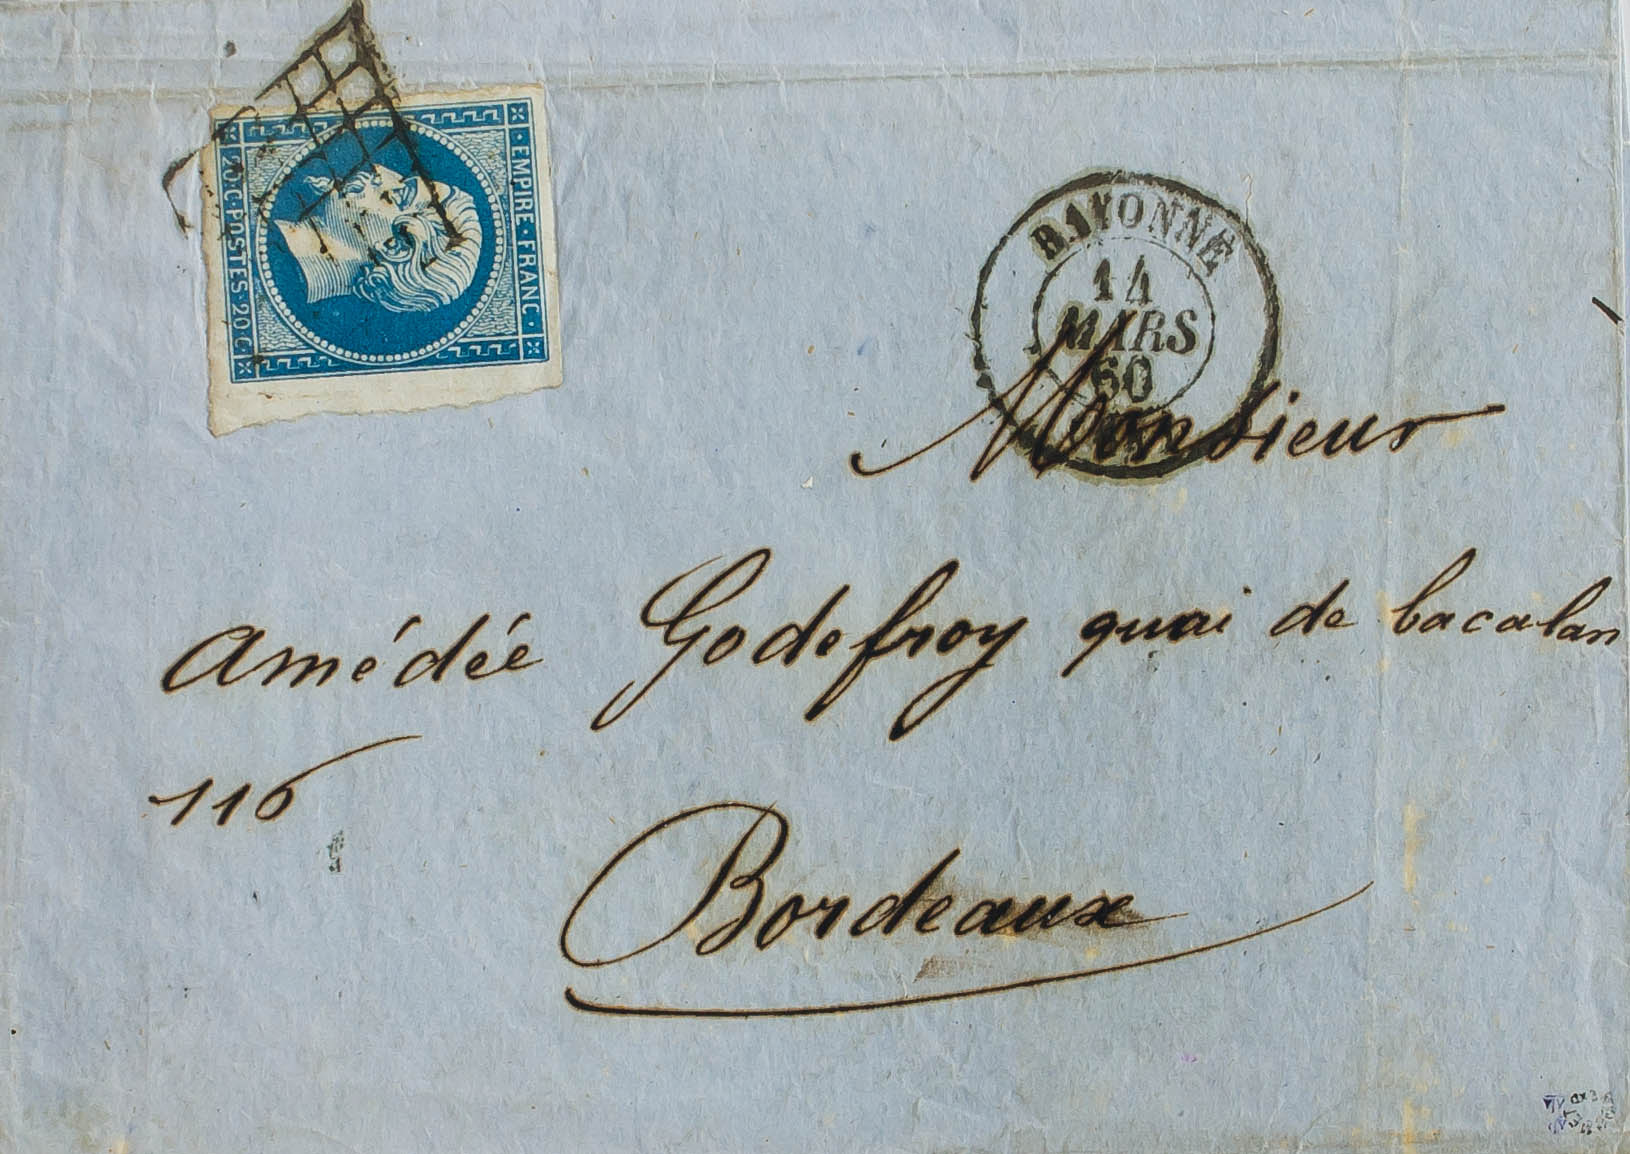 EMPIRE·FRANC·
20·C·POSTES·20·C·
BAYONNE
14
MARS
60
Monsieur
Amédée Godefroy quai de bacalan
116
Bordeaux